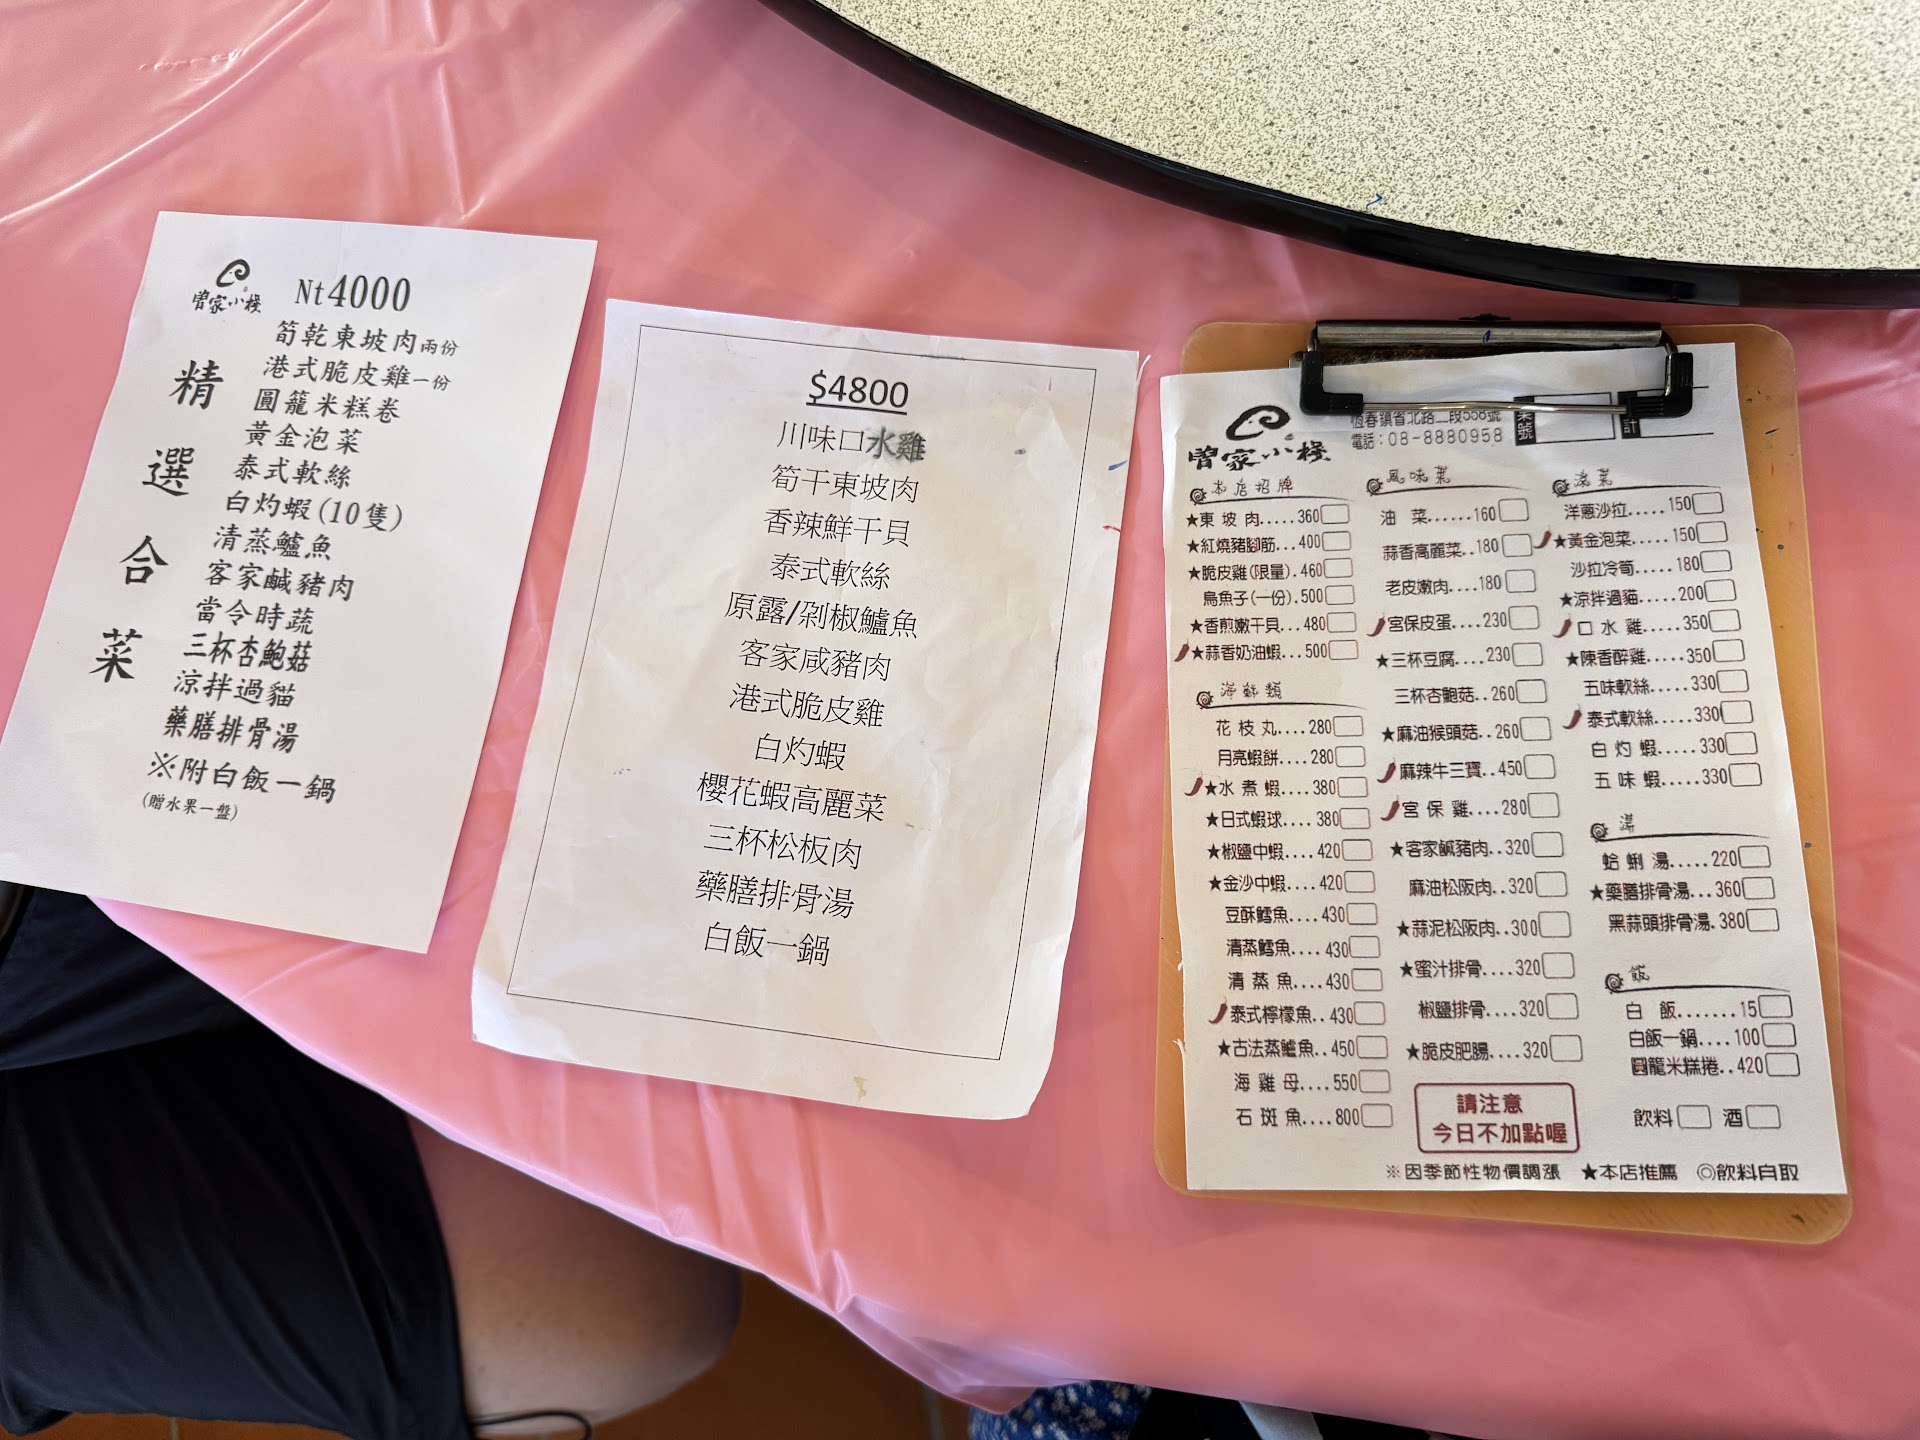 曾家小棧
Nt4000
精選合菜
筍乾東坡肉兩份
港式脆皮雞一份
圓籠米糕卷
黃金泡菜
泰式軟絲
白灼蝦(10隻)
清蒸鱸魚
客家鹹豬肉
當令時蔬
三杯杏鮑菇
涼拌過貓
藥膳排骨湯
※附白飯一鍋
(贈水果一盤)
$4800
川味口水雞
筍干東坡肉
香辣鮮干貝
泰式軟絲
原露/剁椒鱸魚
客家咸豬肉
港式脆皮雞
白灼蝦
櫻花蝦高麗菜
三杯松板肉
藥膳排骨湯
白飯一鍋
曾家小棧
恆春鎮省北路二段558號
電話：08-8880958
桌號
計
本店招牌
★東坡肉.....360
★紅燒豬腳筋...400
★脆皮雞(限量).460
烏魚子(一份).500
★香煎嫩干貝...480
★蒜香奶油蝦...500
海鮮類
花枝丸....280
月亮蝦餅....280
★水煮蝦....380
★日式蝦球....380
★椒鹽中蝦....420
★金沙中蝦....420
豆酥鱈魚....430
清蒸鱈魚....430
清蒸魚....430
泰式檸檬魚..430
★古法蒸鱸魚..450
海雞母....550
石斑魚....800
風味菜
油菜......160
蒜香高麗菜..180
老皮嫩肉....180
宮保皮蛋....230
★三杯豆腐....230
三杯杏鮑菇..260
★麻油猴頭菇..260
麻辣牛三寶..450
宮保雞....280
★客家鹹豬肉..320
麻油松阪肉..320
★蒜泥松阪肉..300
★蜜汁排骨....320
椒鹽排骨....320
★脆皮肥腸....320
請注意
今日不加點喔
涼菜
洋蔥沙拉.....150
★黃金泡菜.....150
沙拉冷筍.....180
★涼拌過貓.....200
口水雞.....350
★陳香醉雞.....350
五味軟絲.....330
泰式軟絲.....330
白灼蝦.....330
五味蝦.....330
湯
蛤蜊湯.....220
★藥膳排骨湯...360
黑蒜頭排骨湯.380
飯
白飯.......15
白飯一鍋....100
圓籠米糕捲..420
飲料 酒
※因季節性物價調漲 ★本店推薦 ◎飲料自取